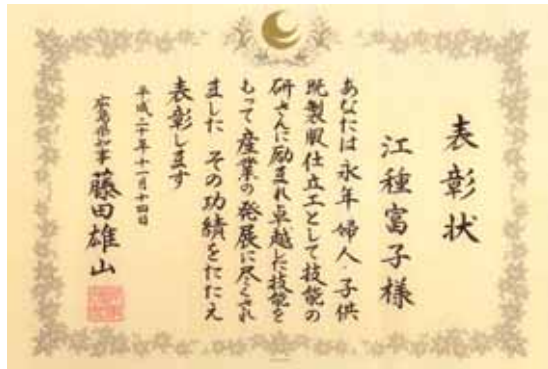 表彰状
江種富子様
あなたは永年婦人・子供
既製服仕立工として技能の
研さんに励まれ卓越した技能を
もって産業の発展に尽くされ
ました その功績をたたえ
表彰します
平成二十年十一月十四日
広島県知事 藤田雄山